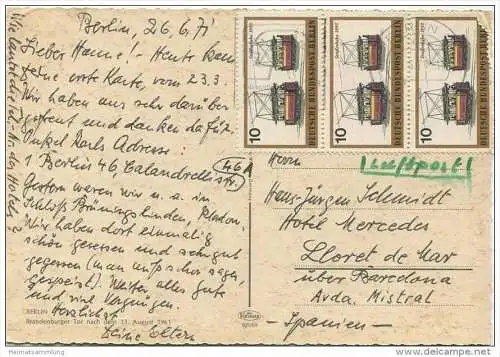 Berlin, 26.6.71
Lieber Hanne! - Heute kam
Deine erste Karte, vom 23.3.
Wir haben uns sehr darüber
gefreut und danken dafür.
Onkel Karls Adresse:
1 Berlin 46, Calandrellistr.
46A
Gestern waren wir u. a. in
Schloß Brüningslinden, Kladow.
Wir haben dort einmalig
schön gesessen und sehr gut
gegessen (man muß schon sagen,
gespeist). Weiter alles Gute
und viel Vergnügen.
Herzlichst
Deine Eltern
Wie lautet die Tel.-Nr. des Hotels?
BERLIN
Brandenburger Tor nach dem 13. August 1961
10 DEUTSCHE BUNDESPOST BERLIN
10 DEUTSCHE BUNDESPOST BERLIN
10 DEUTSCHE BUNDESPOST BERLIN
Luftpost!
Herrn
Hans-Jürgen Schmidt
Hotel Mercedes
Lloret de Mar
über Barcelona
Avda. Mistral
- Spanien -
Heimatsammlung